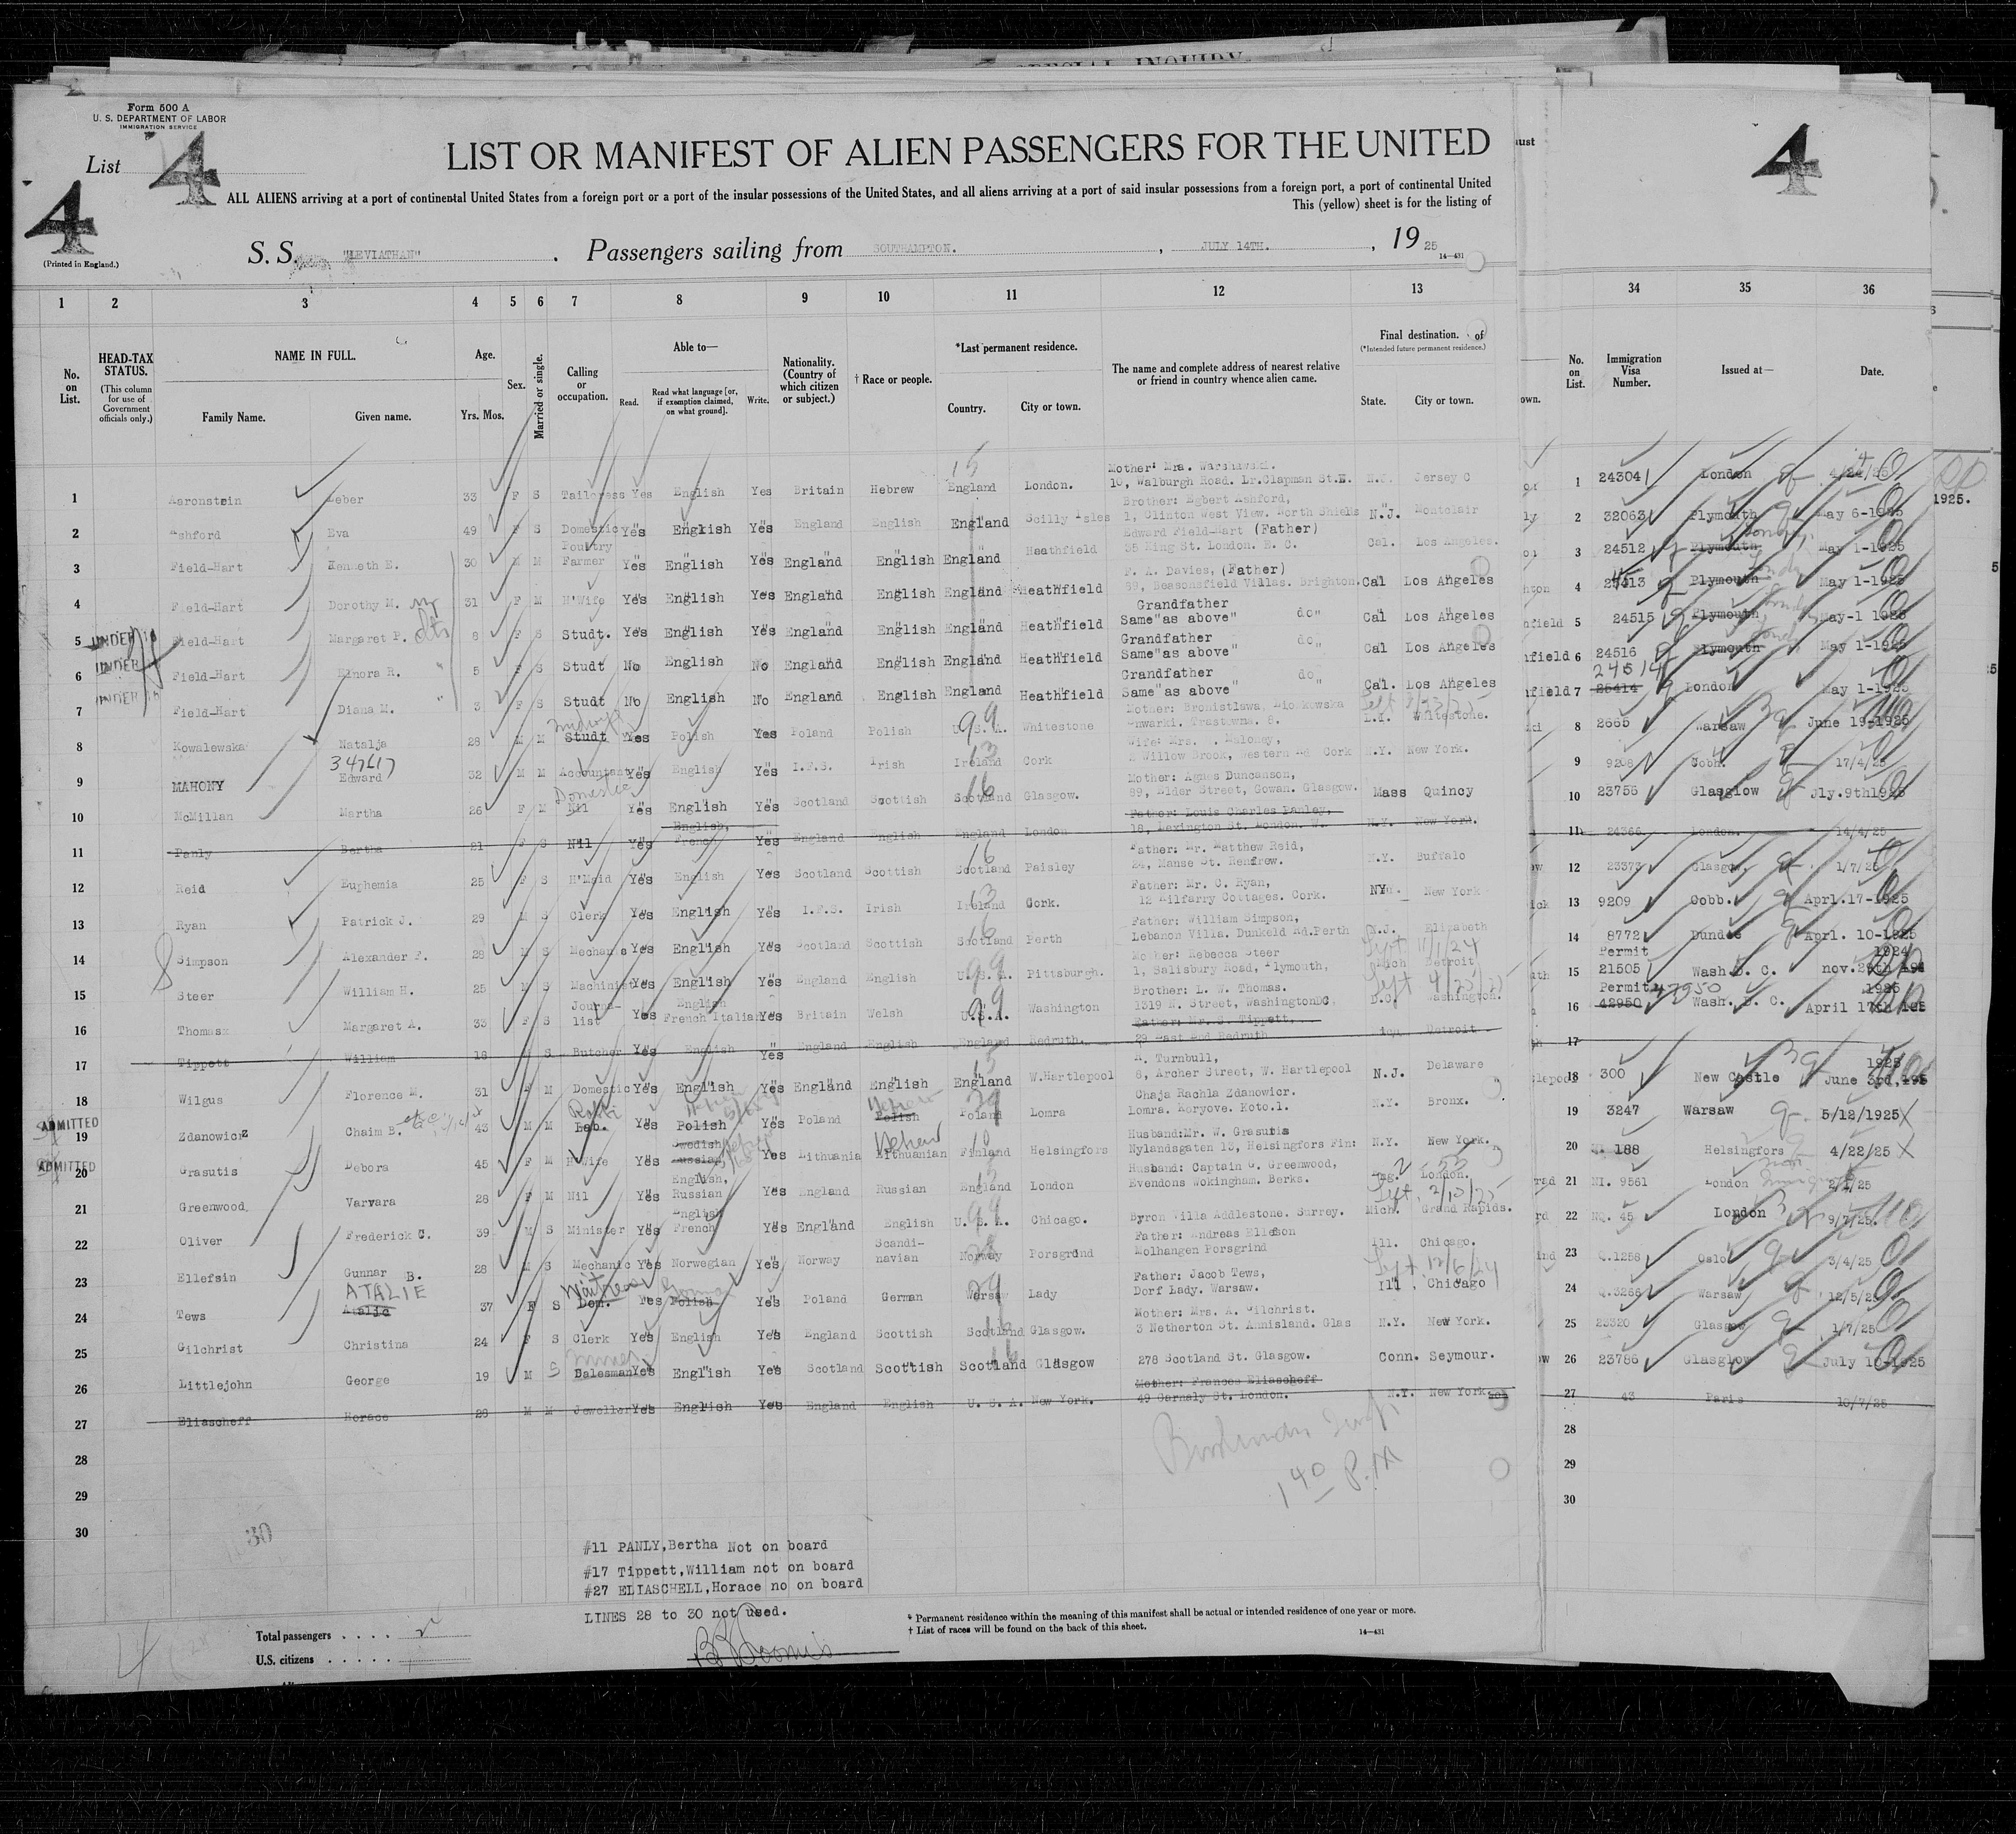 SPECIAL INQUIRY
Form 500 A
U. S. DEPARTMENT OF LABOR
IMMIGRATION SERVICE
List 4
4
(Printed in England.)
LIST OR MANIFEST OF ALIEN PASSENGERS FOR THE UNITED
ALL ALIENS arriving at a port of continental United States from a foreign port or a port of the insular possessions of the United States, and all aliens arriving at a port of said insular possessions from a foreign port, a port of continental United
This (yellow) sheet is for the listing of
S. S. "LEVIATHAN" . Passengers sailing from SOUTHAMPTON. , JULY 14TH. , 19 25
14—431
1 2 3 4 5 6 7 8 9 10 11 12 13
No. on List.
HEAD-TAX STATUS.
(This column for use of Government officials only.)
NAME IN FULL.
Family Name. Given name.
Age.
Yrs. Mos.
Sex.
Married or single.
Calling or occupation.
Able to—
Read. Read what language [or, if exemption claimed, on what ground]. Write.
Nationality. (Country of which citizen or subject.)
† Race or people.
*Last permanent residence.
Country. City or town.
The name and complete address of nearest relative or friend in country whence alien came.
Final destination. of
(*Intended future permanent residence.)
State. City or town.
15 Mother: Mrs. Warshawski.
1 Aaronstein Leber 33 F S Tailoress Yes English Yes Britain Hebrew England London. 10, Walburgh Road. Lr.Clapman St.E. N.J. Jersey C
Brother: Egbert Ashford,
2 Ashford Eva 49 F S Domestic Yes English Yes England English England Scilly Isles 1, Clinton West View. North Shields N.J. Montclair
Poultry Edward Field-Hart (Father)
3 Field-Hart Kenneth E. 30 M M Farmer Yes English Yes England English England Heathfield 35 King St. London. E. C. Cal. Los Angeles.
F. A. Davies, (Father)
4 Field-Hart Dorothy M. 31 F M H'Wife Yes English Yes England English England Heathfield 89, Beaconsfield Villas. Brighton. Cal Los Angeles
Grandfather
5 UNDER 16 Field-Hart Margaret P. 8 F S Studt. Yes English Yes England English England Heathfield Same "as above" do" Cal Los Angeles
Grandfather
6 UNDER Field-Hart Elnora R. 5 F S Studt No English No England English England Heathfield Same "as above" do" Cal Los Angeles
Grandfather
7 UNDER 16 Field-Hart Diana M. 3 F S Studt No English No England English England Heathfield Same "as above" do" Cal. Los Angeles
99
8 Kowalewska Natalja 28 M M Studt Yes Polish Yes Poland Polish U. S. A. Whitestone Whitestone.
347617 13
9 MAHONY Edward 32 M M Accountant Yes English Yes I.F.S. Irish Ireland Cork 2 Willow Brook, Western Rd Cork N.Y. New York.
Domestic 16 Mother: Agnes Duncanson,
10 McMillan Martha 26 F M Nil Yes English Yes Scotland Scottish Scotland Glasgow. 89, Elder Street, Gowan. Glasgow. Mass Quincy
English, Father: Louis Charles Panley,
11 Panly Bertha 21 F S Nil Yes French Yes England English England London 18, Lexington St. London. W. N.Y. New York.
16 Father: Mr. Matthew Reid,
12 Reid Euphemia 25 F S H'Maid Yes English Yes Scotland Scottish Scotland Paisley 24, Manse St. Renfrew. N.Y. Buffalo
13 Father: Mr. C. Ryan,
13 Ryan Patrick J. 29 M S Clerk Yes English Yes I.F.S. Irish Ireland Cork. 12 Kilfarry Cottages. Cork. NY. New York
16 Father: William Simpson,
14 Simpson Alexander F. 28 M S Mechanic Yes English Yes Scotland Scottish Scotland Perth Lebanon Villa. Dunkeld Rd.Perth N.J. Elizabeth
99 Mother: Rebecca Steer
15 Steer William H. 25 M S Machinist Yes English Yes England English U. S. A. Pittsburgh. 1, Salisbury Road, Plymouth, Mich Detroit
Journa- English 99 Brother: L. W. Thomas.
16 Thomas Margaret A. 33 F S list Yes French Italian Yes Britain Welsh U.S.A. Washington 1319 N. Street, WashingtonDC, D.C. Washington.
Father: Mr. S. Tippett,
17 Tippett William 18 S Butcher Yes English Yes England English England Redruth. 29 East End Redruth Detroit
15 R. Turnbull,
18 Wilgus Florence M. 31 F M Domestic Yes English Yes England English England W.Hartlepool 6, Archer Street, W. Hartlepool N.J. Delaware
Rabbi Hebrew Hebrew 29 Chaja Rachla Zdanowicr.
ADMITTED 19 Zdanowicz Chaim B. 43 M M Lab. Yes Polish Yes Poland Polish Poland Lomra Lomra. Koryove. Koto.1. N.Y. Bronx.
Swedish, Hebrew Husband:Mr. W. Grasutis
ADMITTED 20 Grasutis Debora 45 F M H'Wife Yes Russian, Yes Lithuania Lithuanian Finland Helsingfors Nylandsgaten 13, Helsingfors Fin: N.Y. New York.
English, 15 Husband: Captain G. Greenwood,
21 Greenwood, Varvara 28 F M Nil Yes Russian Yes England Russian England London Evendons Wokingham. Berks. Eng. London.
English 99
22 Oliver Frederick C. 39 M S Minister Yes French Yes England English U. S. A. Chicago. Byron Villa Addlestone. Surrey. Mich. Grand Rapids.
Scandi- Father: Andreas Ellefson
23 Ellefsin Gunnar B. 28 M S Mechanic Yes Norwegian Yes Norway navian Norway Porsgrund Molhangen Porsgrind Ill. Chicago.
ATALIE Waitress German 29 Father: Jacob Tews,
24 Tews Atalie 37 F S Dom. Yes Polish Yes Poland German Warsaw Lady Dorf Lady. Warsaw. Ill. Chicago
16 Mother: Mrs. A. Gilchrist.
25 Gilchrist Christina 24 F S Clerk Yes English Yes England Scottish Scotland Glasgow. 3 Netherton St. Annisland. Glas N.Y. New York.
16
26 Littlejohn George 19 M S Salesman Yes English Yes Scotland Scottish Scotland Glasgow 278 Scotland St. Glasgow. Conn. Seymour.
Mother: Frances Eliascheff
27 Eliascheff Horace 28 M M Jeweller Yes English Yes England English U. S. A. New York. 49 Carnaly St. London. N.Y. New York
28
29
30
1 40 P.M
#11 PANLY,Bertha Not on board
#17 Tippett,William not on board
#27 ELIASCHELL,Horace no on board
LINES 28 to 30 not used.
Total passengers . . . .
U.S. citizens . . . . .
* Permanent residence within the meaning of this manifest shall be actual or intended residence of one year or more.
† List of races will be found on the back of this sheet.
14—431
4
34 35 36
No. on List. Immigration Visa Number. Issued at— Date.
1 24304 London 4/24/25
2 32063 Plymouth May 6-1925
3 24512 Plymouth May 1-1925
4 Plymouth May 1-1925
5 24515 Plymouth May-1 1925
6 24516 Plymouth May 1-1925
24514
7 25414 London May 1-1925
8 2665 Warsaw June 19-1925
9 9208 Cobh. 17/4/25
10 23756 Glasglow Jly.9th1925
11 24366 London. 14/4/25
12 23373 Glasgow, 1/7/25
13 9209 Cobb. Aprl.17-1925
14 8772 Dundee Aprl. 10-1925
Permit 1924
15 21505 Wash D. C. nov.29th
Permit 47950 1925
16 42950 Wash. D. C. April 17th
17
1925
18 300 New Castle June 3rd,
19 3247 Warsaw 5/12/1925
20 188 Helsingfors 4/22/25
21 NI. 9561 London
22 NQ. 45 London 9/7/25.
23 Q.1258 Oslo 3/4/25
24 Q.3266 Warsaw 12/5/25
25 23320 Glasgow 1/7/25
26 23786 Glasglow July 10-1925
27 43 Paris 10/7/25
28
29
30
1925.